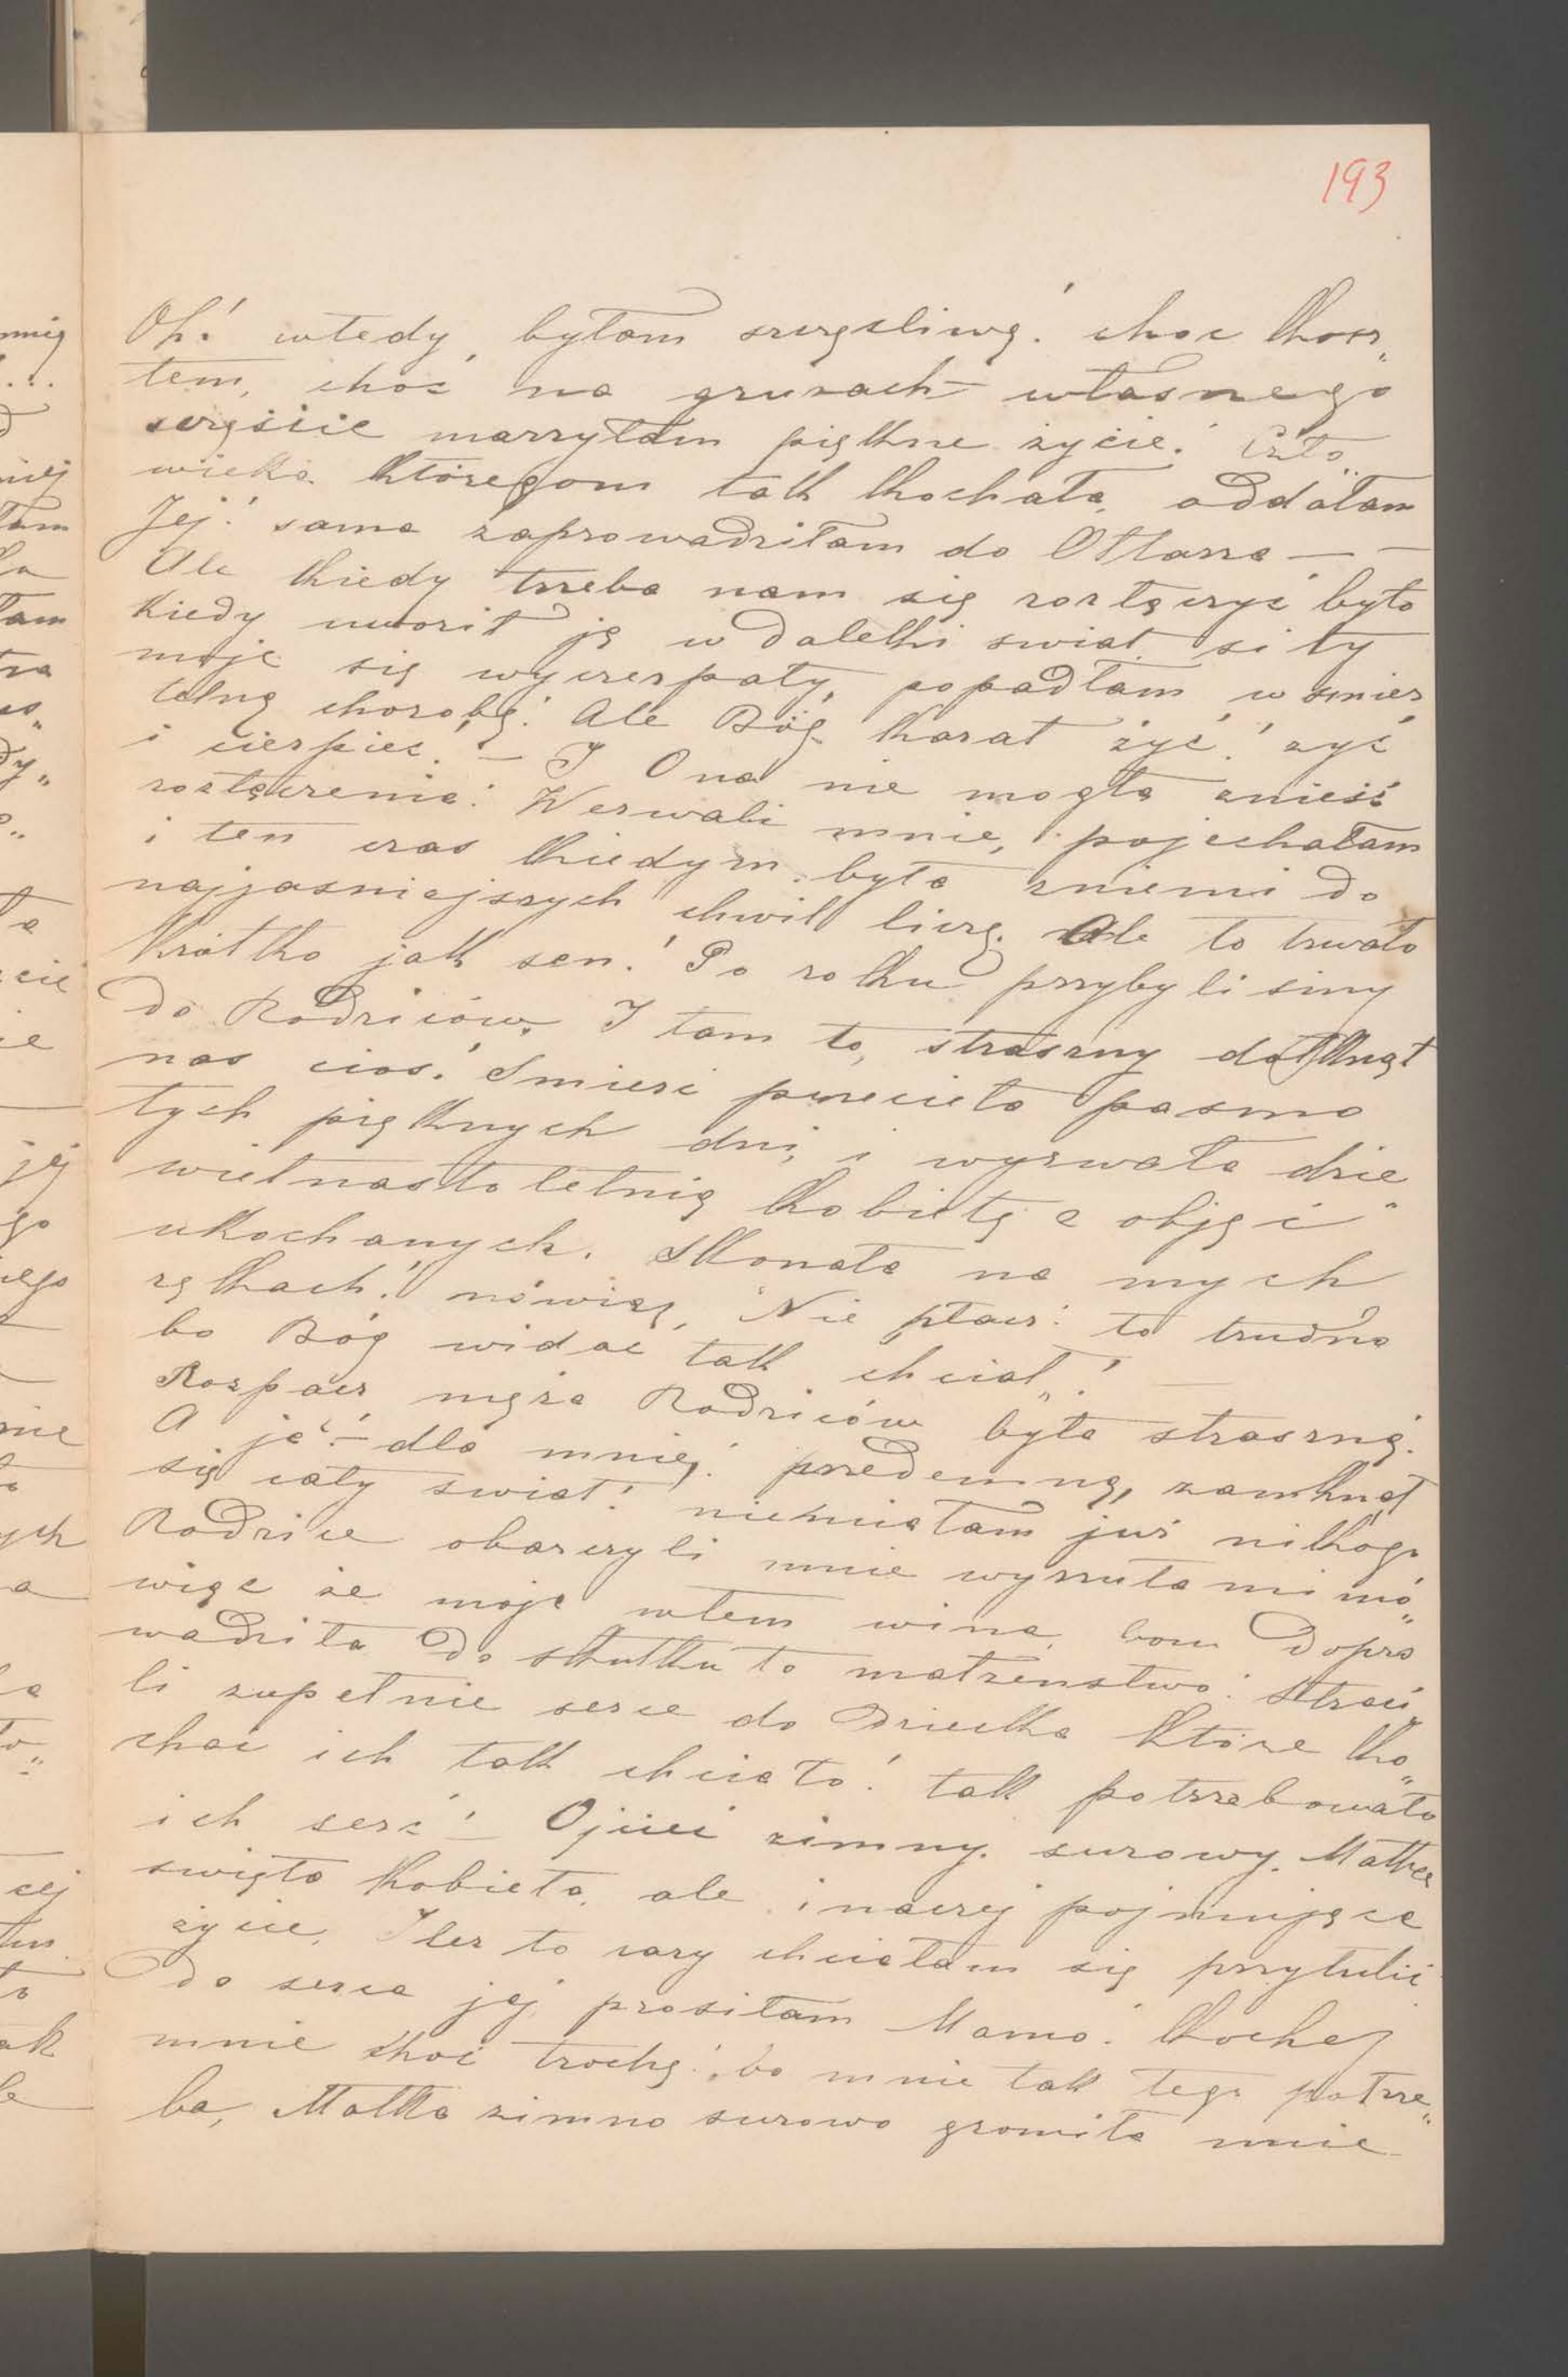 193
Oh! wtedy, byłam szczęśliwą! choć kosz„
tem, choć na gruzach własnego
szczęścia marzyłam piękne życie! Czło„
wieka któregom tak kochała, oddałam
Jej! sama zaprowadziłam do Ołtarza — —
Ale kiedy trzeba nam się rozłączyć było
Kiedy uwoził ją w daleki swiat siły
moje się wyczerpały, popadłam w smier
telną chorobę! Ale Bóg kazał żyć! żyć
i cierpieć! — I Ona nie mogła znieść
rozłączenia! Wezwali mnie, pojechałam
i ten czas kiedym była zniemi do
najjasniejszych chwil liczę. Ale to trwało
krótko jak sen! Po roku przybylismy
do Rodziców. I tam to, straszny dotknął
nas cios! Smierć przecieła pasmo
tych pięknych dni, i wyrwała dzie„
wietnastoletnią kobietę z objęć
ukochanych. Skonała na mych
rękach! mówiąc, „Nie płacz! to trudno
bo Bóg widać tak chciał„! —
Rozpacz męża Rodziców była straszną.
A ja! — dla mnie! przedemną, zamknął
się cały swiat! niemiałam już nikogo
Rodzice obarczyli mnie wyrzutami mó„
wiąc że moja wtem wina, bom dopro
wadziła do skutku to małżenstwo! Straci„
li zupełnie serce do dziecka które ko„
chać ich tak chciało! tak potrzebowało
ich serc! — Ojciec zimny, surowy. Matka
swięta kobieta, ale inaczej pojmująca
życie. Ileż to razy chciałam się przytulić
do serca jej prosiłam Mamo! kochaj
mnie choć trochę! bo mnie tak tego potrze„
ba, Matka zimno surowo gromiła mnie